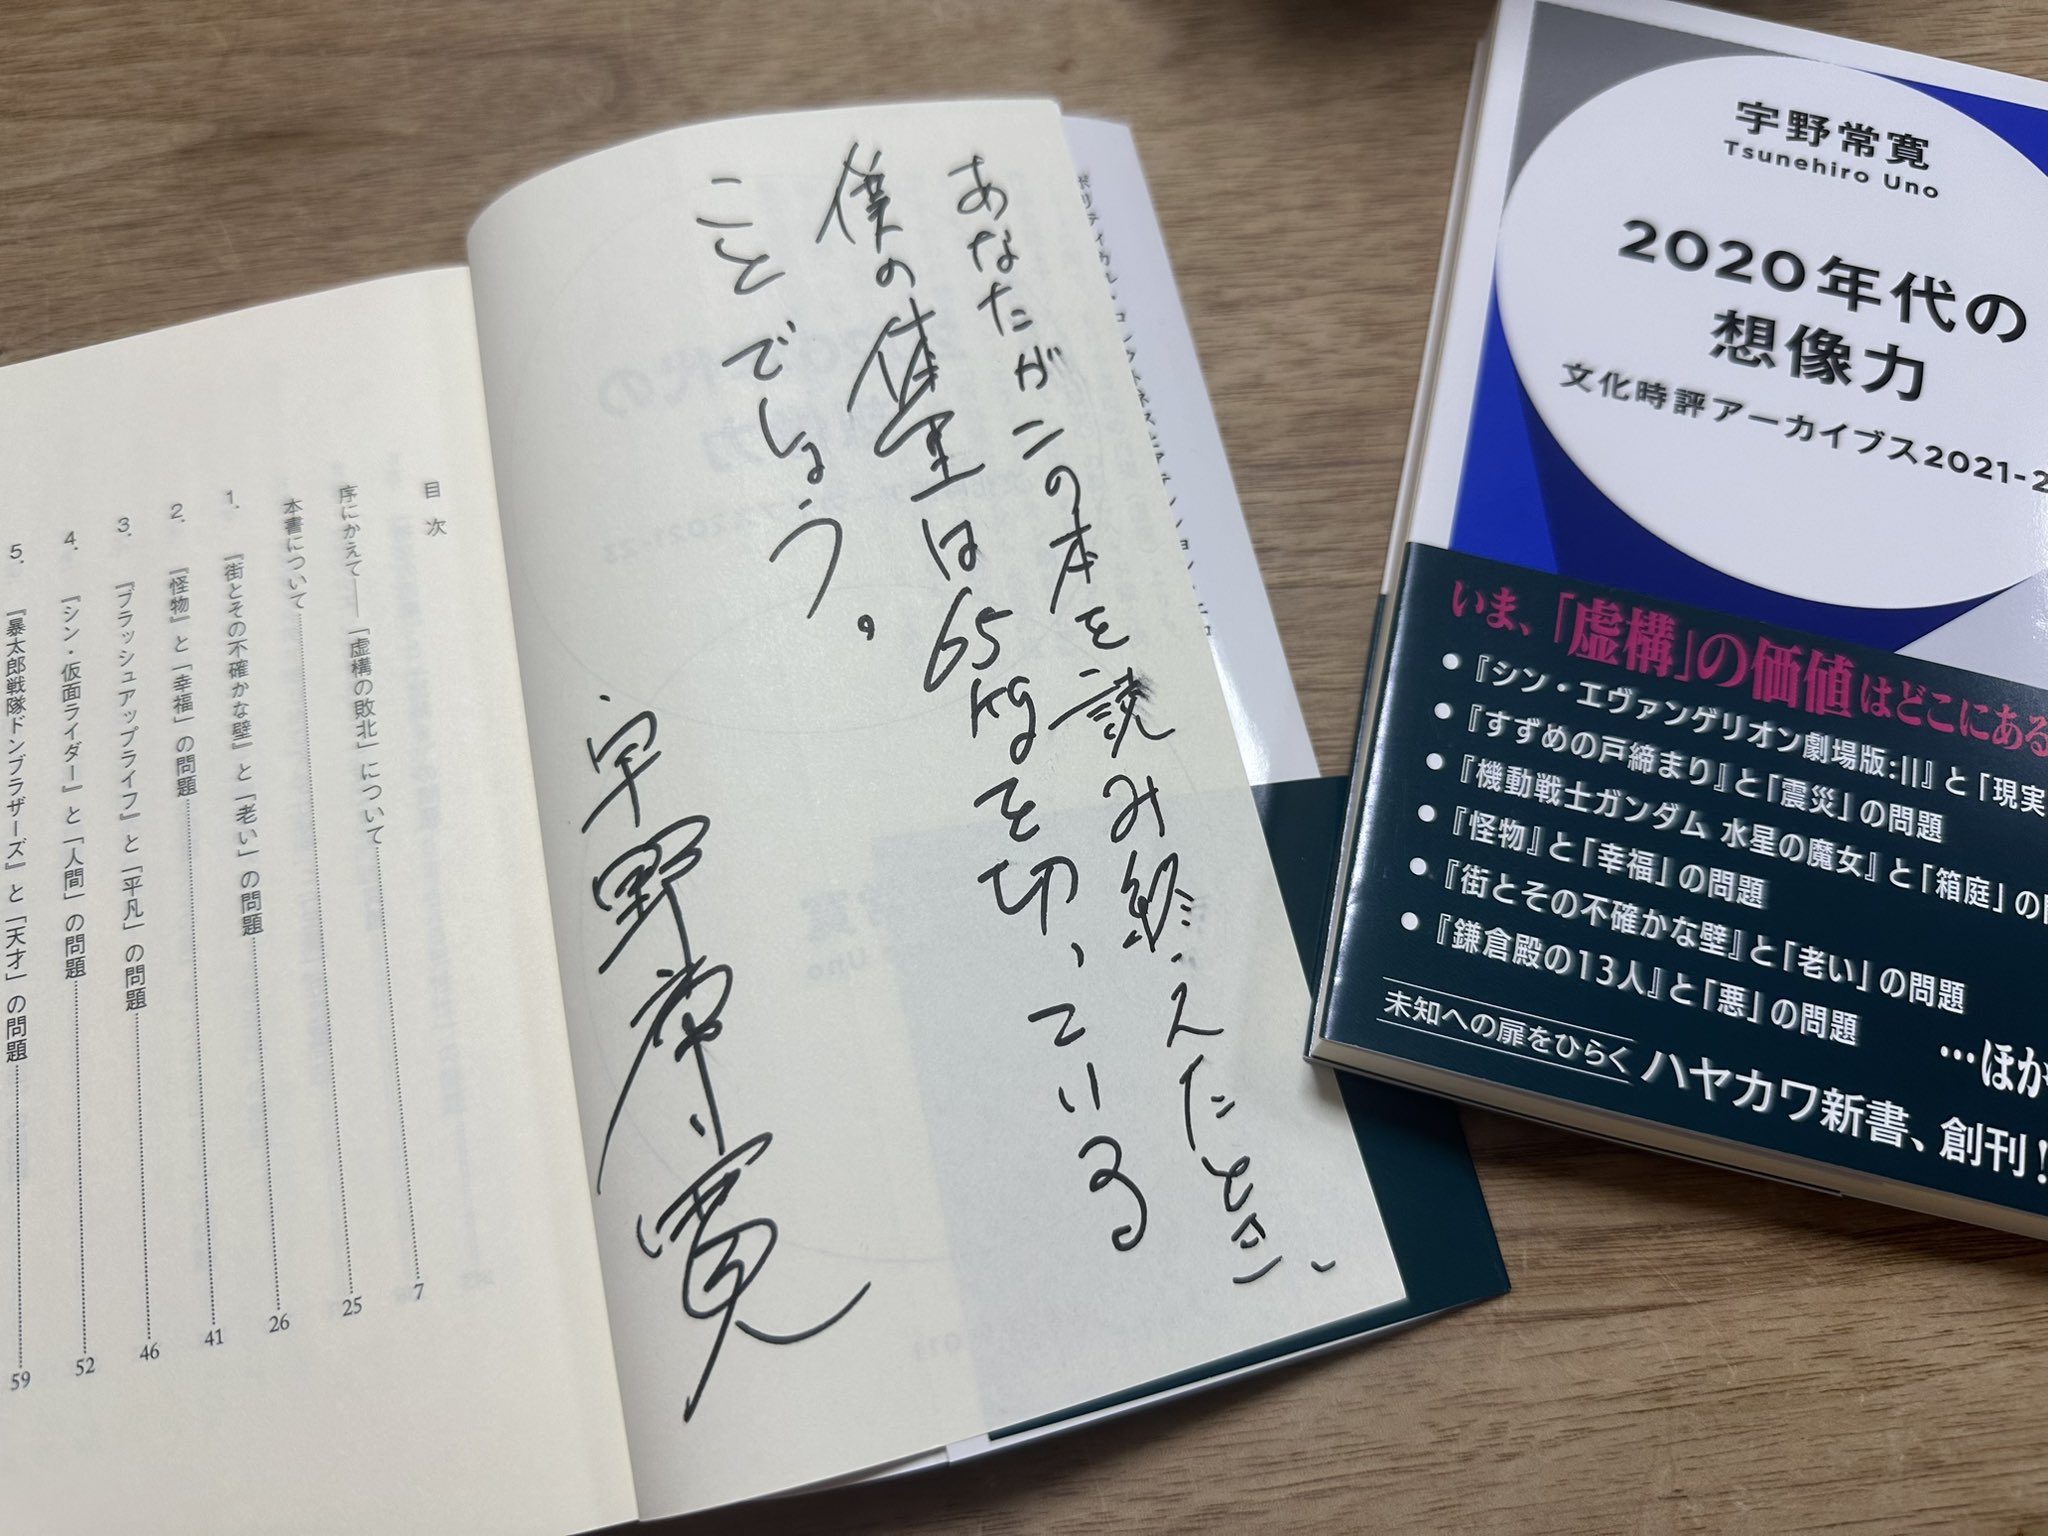 あなたがこの本を読み終えたとき、
僕の体重は65kgを切っている
ことでしょう。
宇野常寛
目次
序にかえて――「虚構の敗北」について 7
本書について 25
1. 『街とその不確かな壁』と「老い」の問題 26
2. 『怪物』と「幸福」の問題 41
3. 『ブラッシュアップライフ』と「平凡」の問題 46
4. 『シン・仮面ライダー』と「人間」の問題 52
5. 『暴太郎戦隊ドンブラザーズ』と「天才」の問題 59
宇野常寛
Tsunehiro Uno
2020年代の
想像力
文化時評アーカイブス2021-2
いま、「虚構」の価値はどこにある
●『シン・エヴァンゲリオン劇場版:||』と「現実
●『すずめの戸締まり』と「震災」の問題
●『機動戦士ガンダム 水星の魔女』と「箱庭」の
●『怪物』と「幸福」の問題
●『街とその不確かな壁』と「老い」の問題
●『鎌倉殿の13人』と「悪」の問題
…ほか
未知への扉をひらく ハヤカワ新書、創刊!